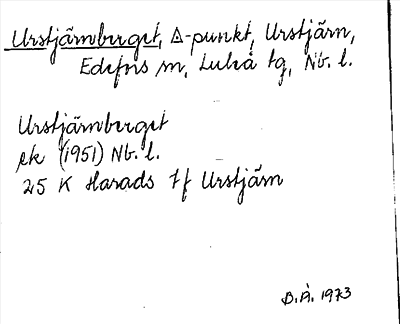 Urstjärnberget, △-punkt, Urstjärn,
Edefors sn, Luleå tg, Nb. l.
Urstjärnberget
ek (1951) Nb. l.
25 K Harads 7f Urstjärn
B.Å. 1973